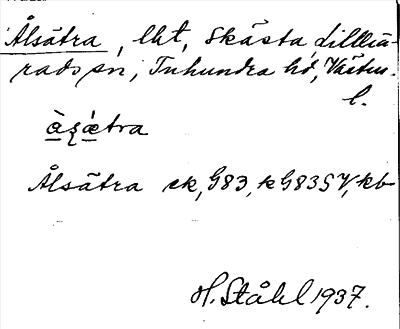 Ålsätra, lht, Skästa, Lillhä-
rads sn, Tuhundra hd, Västm.
l.
àʂǽtra
Ålsätra ek, G83, k G83SV, kb
H. Ståhl 1937.